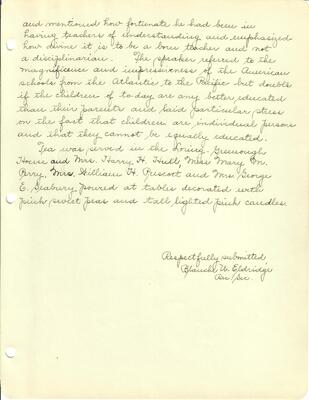 and mentioned how fortunate he had been in
having teachers of understanding and emphasized
how divine it is to be a born teacher and not
a disciplinarian. The speaker referred to the
magnificence and impressiveness of the American
schools from the Atlantic to the Pacific but doubts
if the children of to day are any better educated
than their parents and laid particular stress
on the fact that children are individual persons
and that they cannot be equally educated.
Tea was served in the Loring-Greenough
House and Mrs. Harry H. Hull, Miss Mary M.
Perry, Mrs. William H. Prescott and Mrs. George
E. Seabury poured at tables decorated with
pink sweet peas and tall lighted pink candles.
Respectfully submitted,
Blanche W. Eldridge
Rec. Sec.